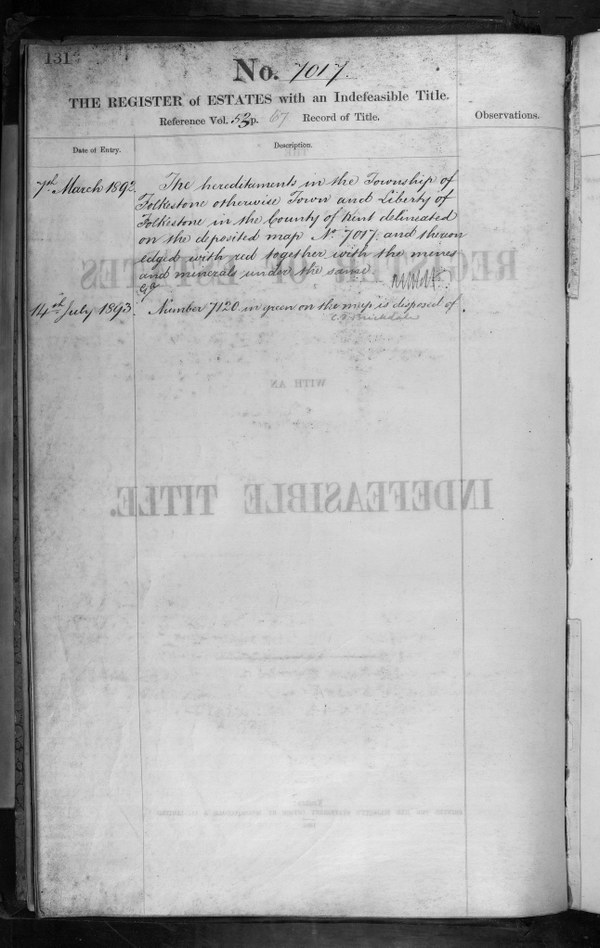 131
No. 7017.
THE REGISTER of ESTATES with an Indefeasible Title.
Reference Vol. 53 p. 67 Record of Title.
Observations.
Date of Entry.
Description.
7th March 1892.
The hereditaments in the Township of
Folkestone otherwise Town and Liberty of
Folkestone in the County of Kent delineated
on the deposited map No 7017 and thereon
edged with red together with the mines
and minerals under the same
14th July 1893.
Number 7120 in green on the map is disposed of.
C. F. Brickdale
REGISTER OF ESTATES
WITH AN
INDEFEASIBLE TITLE.